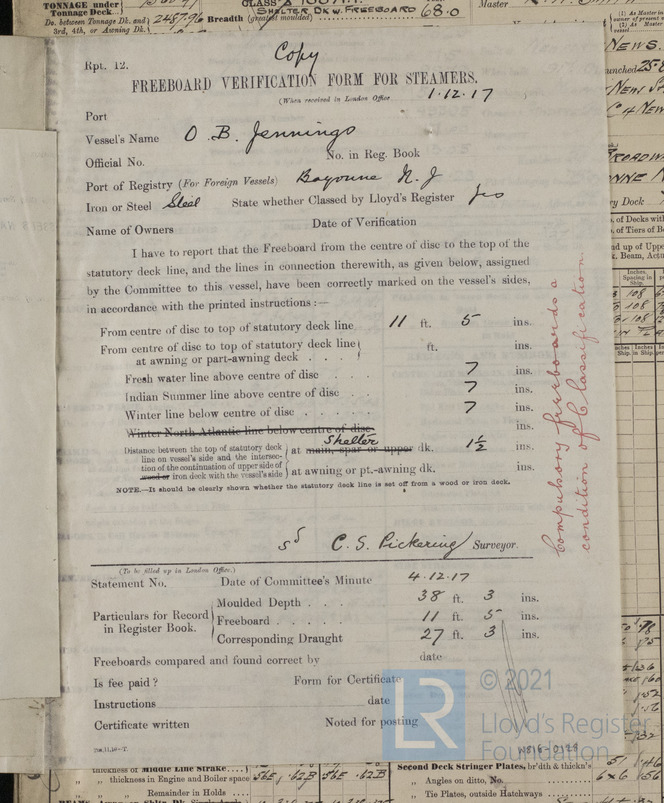 TONNAGE under
Tonnage Deck
Do. between Tonnage Dk. and
3rd, 4th, or Awning Dk.
2487.96
Breadth (greatest moulded)
SHELTER DK W. FREEBOARD
68.0
Master
Copy
Rpt. 12.
FREEBOARD VERIFICATION FORM FOR STEAMERS.
(When received in London Office 1.12.17
Port
Vessel's Name O. B. Jennings
Official No. No. in Reg. Book
Port of Registry (For Foreign Vessels) Bayonne N. J
Iron or Steel Steel State whether Classed by Lloyd's Register Yes
Name of Owners Date of Verification
I have to report that the Freeboard from the centre of disc to the top of the
statutory deck line, and the lines in connection therewith, as given below, assigned
by the Committee to this vessel, have been correctly marked on the vessel's sides,
in accordance with the printed instructions :—
From centre of disc to top of statutory deck line 11 ft. 5 ins.
From centre of disc to top of statutory deck line
at awning or part-awning deck . . . . ft. ins.
Fresh water line above centre of disc . . . . 7 ins.
Indian Summer line above centre of disc . . . 7 ins.
Winter line below centre of disc . . . . . 7 ins.
Winter North Atlantic line below centre of disc ins.
Shelter
Distance between the top of statutory deck
line on vessel's side and the intersec-
tion of the continuation of upper side of
wood or iron deck with the vessel's side
at main, spar or upper dk. 1½ ins.
at awning or pt.-awning dk. ins.
NOTE.—It should be clearly shown whether the statutory deck line is set off from a wood or iron deck.
sd C. S. Pickering Surveyor.
Compulsory freeboards a
condition of Classification
(To be filled up in London Office.)
Statement No. Date of Committee's Minute 4.12.17
Particulars for Record
in Register Book.
Moulded Depth . . . 38 ft. 3 ins.
Freeboard . . . . 11 ft. 5 ins.
Corresponding Draught 27 ft. 3 ins.
Freeboards compared and found correct by date
Is fee paid ? Form for Certificate
Instructions date
Certificate written Noted for posting
© 2021
LR
Lloyd's Register
Foundation
W816-0128
thickness of Middle Line Strake
" thickness in Engine and Boiler space 56E .62B 56E .62B
" Remainder in Holds
Second Deck Stringer Plates, br'dth & thickn's 51 .46
" Angles on ditto, No. 6 x 6 .56
" Tie Plates, outside Hatchways